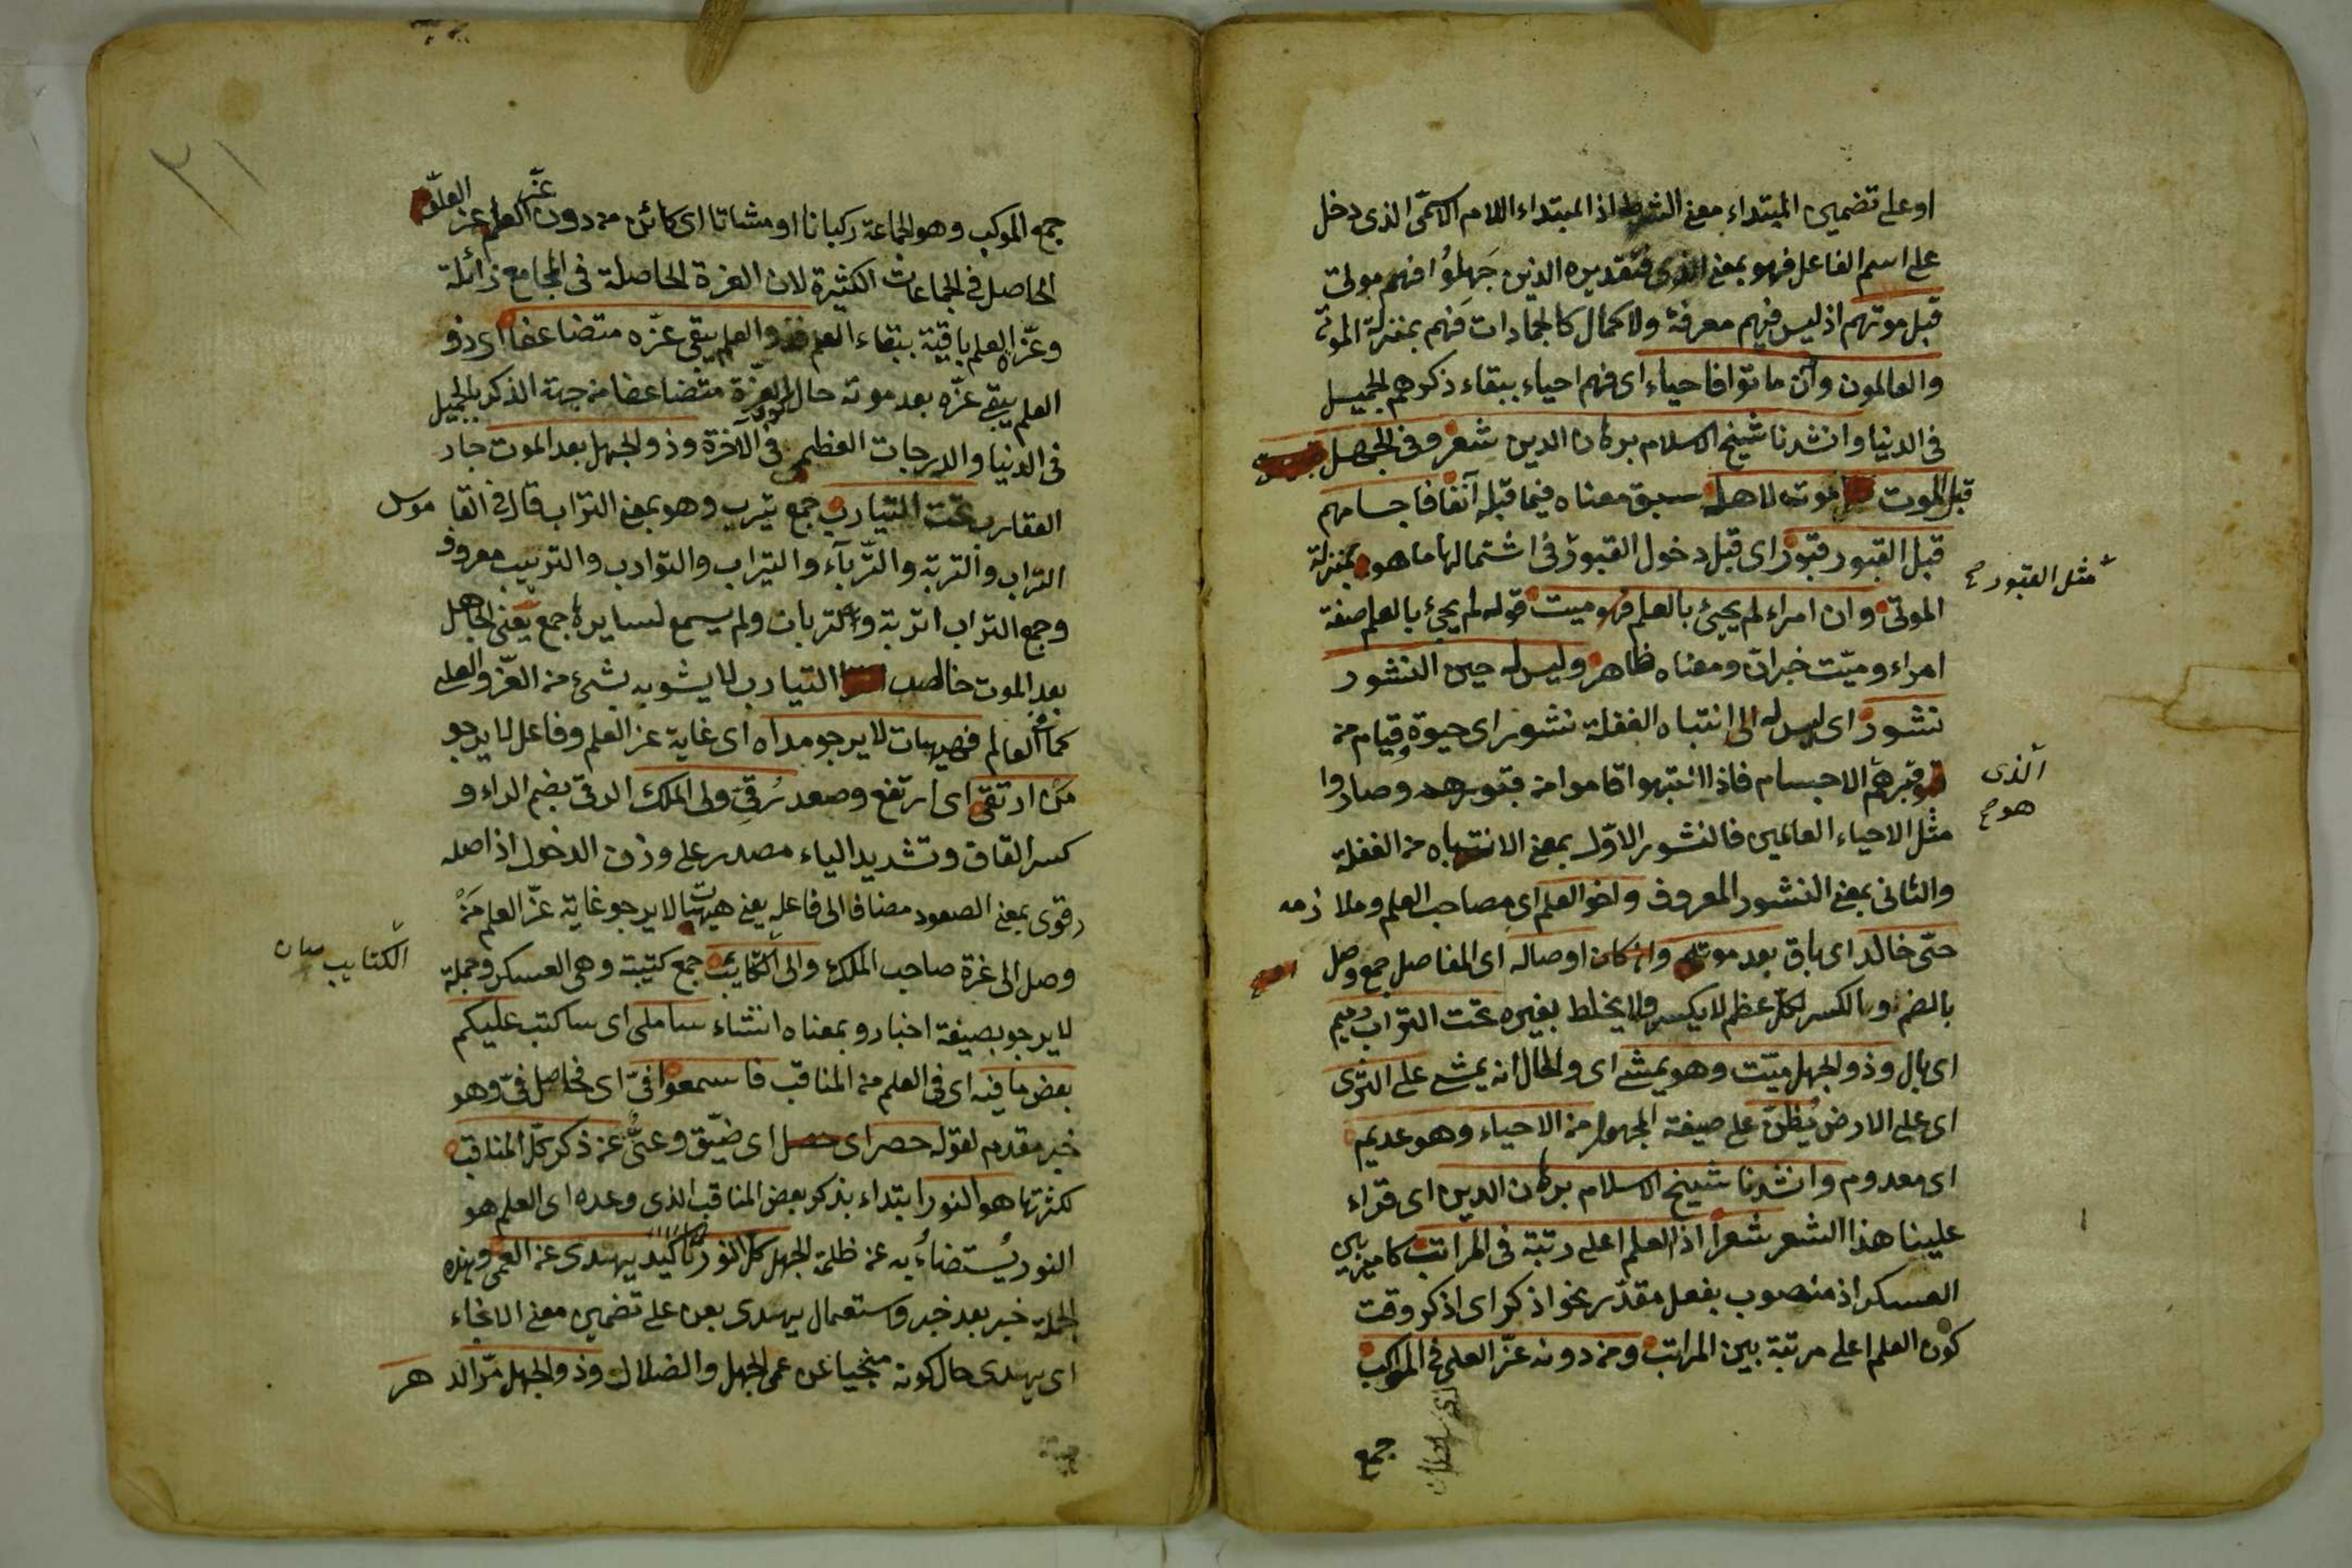 او على تضمين المبتداء معنى الشرط اذ المبتداء اللام الاسمى الذى دخل
على اسم الفاعل فهو بمعنى الذى فتقديره الذين جَهِلُوا فهم موتى
قبل موتهم اذ ليس فيهم معرفة ولا كمال كالجمادات فهم بمنزلة الموتى
والعالمون وان ماتوا فاحياء اى فهم احياء ببقاء ذكرهم الجميل
فى الدنيا وانشدنا شيخ الاسلام برهان الدين شعر وفى الجهل
قبل الموت موت لاهله سبق معناه فيما قبله آنفا فاجسامهم
قبل القبور قبور اى قبل دخول القبور فى اشتمالها ما هو بمنزلة
مثل القبور
الموتى وان امراء لم يحيى بالعلم فهو ميت قوله لم يحيى بالعلم صفة
امراء وميّت خبر ان ومعناه ظاهر وليس له حين النشور
نشور اى ليس له الى انتباه الغفلة نشور اى حيوة وقيام من
قبرهم الاجسام فاذا انتبهوا قاموا من قبورهم وصاروا
الذى
هو
مثل الاحياء العالمين فالنشور الاوّل بمعنى الانتباه من الغفلة
والثانى بمعنى النشور المعروف واخو العلم اى مصاحب العلم وملازمه
حتّى خالد اى باق بعد موته وان كان اوصاله اى المفاصل جمع وصل
بالضم وبالكسر لكل عظم لا يكسر ولا يخلط بغيره تحت التراب رميم
اى بال وذو الجهل ميّت وهو يمشى اى والحال انه يمشى على الثرى
اى على الارض يُظنّ على صيغة المجهول من الاحياء وهو عديم
اى معدوم وانشدنا شيخ الاسلام برهان الدين اى قراء
علينا هذا الشعر شعرا اذ العلم اعلى رتبة فى المراتب كامير
العسكر اذ منصوب بفعل مقدّر نحو اذكر اى اذكر وقت
كون العلم اعلى مرتبة بين المراتب ومن دونه عزّ العلى فى المواكب
جمع
٢١
جمع الموكب وهو الجماعة ركبانا او مشاتا اى كائن من دون عزّ العلم عز العلوّ
الحاصل فى الجماعات الكثيرة لان العزة الحاصلة فى المجامع زائلة
وعزّ العلم باقية ببقاء العلم فذو العلم يبقى عزّه متضاعفا اى ذو
العلم يبقى عزّه بعد موته حال العزّة متضاعفا من جهة الذكر بالجميل
فى الدنيا والدرجات العظيم فى الآخرة وذو الجهل بعد الموت جار
العقارب تحت التيارب جمع تيرب وهو بمعنى التراب قال فى القاموس
التراب والتربة والتّرباء والتيراب والتوارب والتريب معروف
وجمع التراب اتربة والتربان ولم يسمع لسايرها جمع يعنى الجاهل
بعد الموت خالص التيارب لا يشوبه بشئ من العز والعلى
كما العالم فهيهات لا يرجو مداه اى غاية عز العلم وفاعل لا يرجو
من ارتقى اى ارتفع وصعد رُقىّ ولى الملك الرقى بضم الراء و
كسر القاف وتشديد الياء مصدر على وزن الدخول اذ اصله
رقوى بمعنى الصعود مضافا الى فاعله يعنى هيهات لا يرجو غاية عزّ العلم مَنْ
وصل الى عزة صاحب الملك والى الكتايب جمع كتيبة وهى العسكر وجملة
الكتايب
لا يرجو بصيغة اخبار وبمعناه انشاء ساملى اى ساكتب عليكم
بعض ما فيه اى فى العلم من المناقب فاسمعوا فىّ اى فحاصل فىّ وهو
خبر مقدم لقوله حصر اى حصل اى ضيّق وعىّ عن ذكر كلّ المناقب
لكثرتها هو النور ابتداء بذكر بعض المناقب الذى وعده اى العلم هو
النور يُستضاءُ به عن ظلمة الجهل كل النور تاكيد يهدى عن العمى وهذه
الجملة خبر بعد خبر واستعمال يهدى بعن على تضمين معنى الانجاء
اى يهدى حال كونه منجيا عن عمى الجهل والضلال وذو الجهل مرّ الدهر